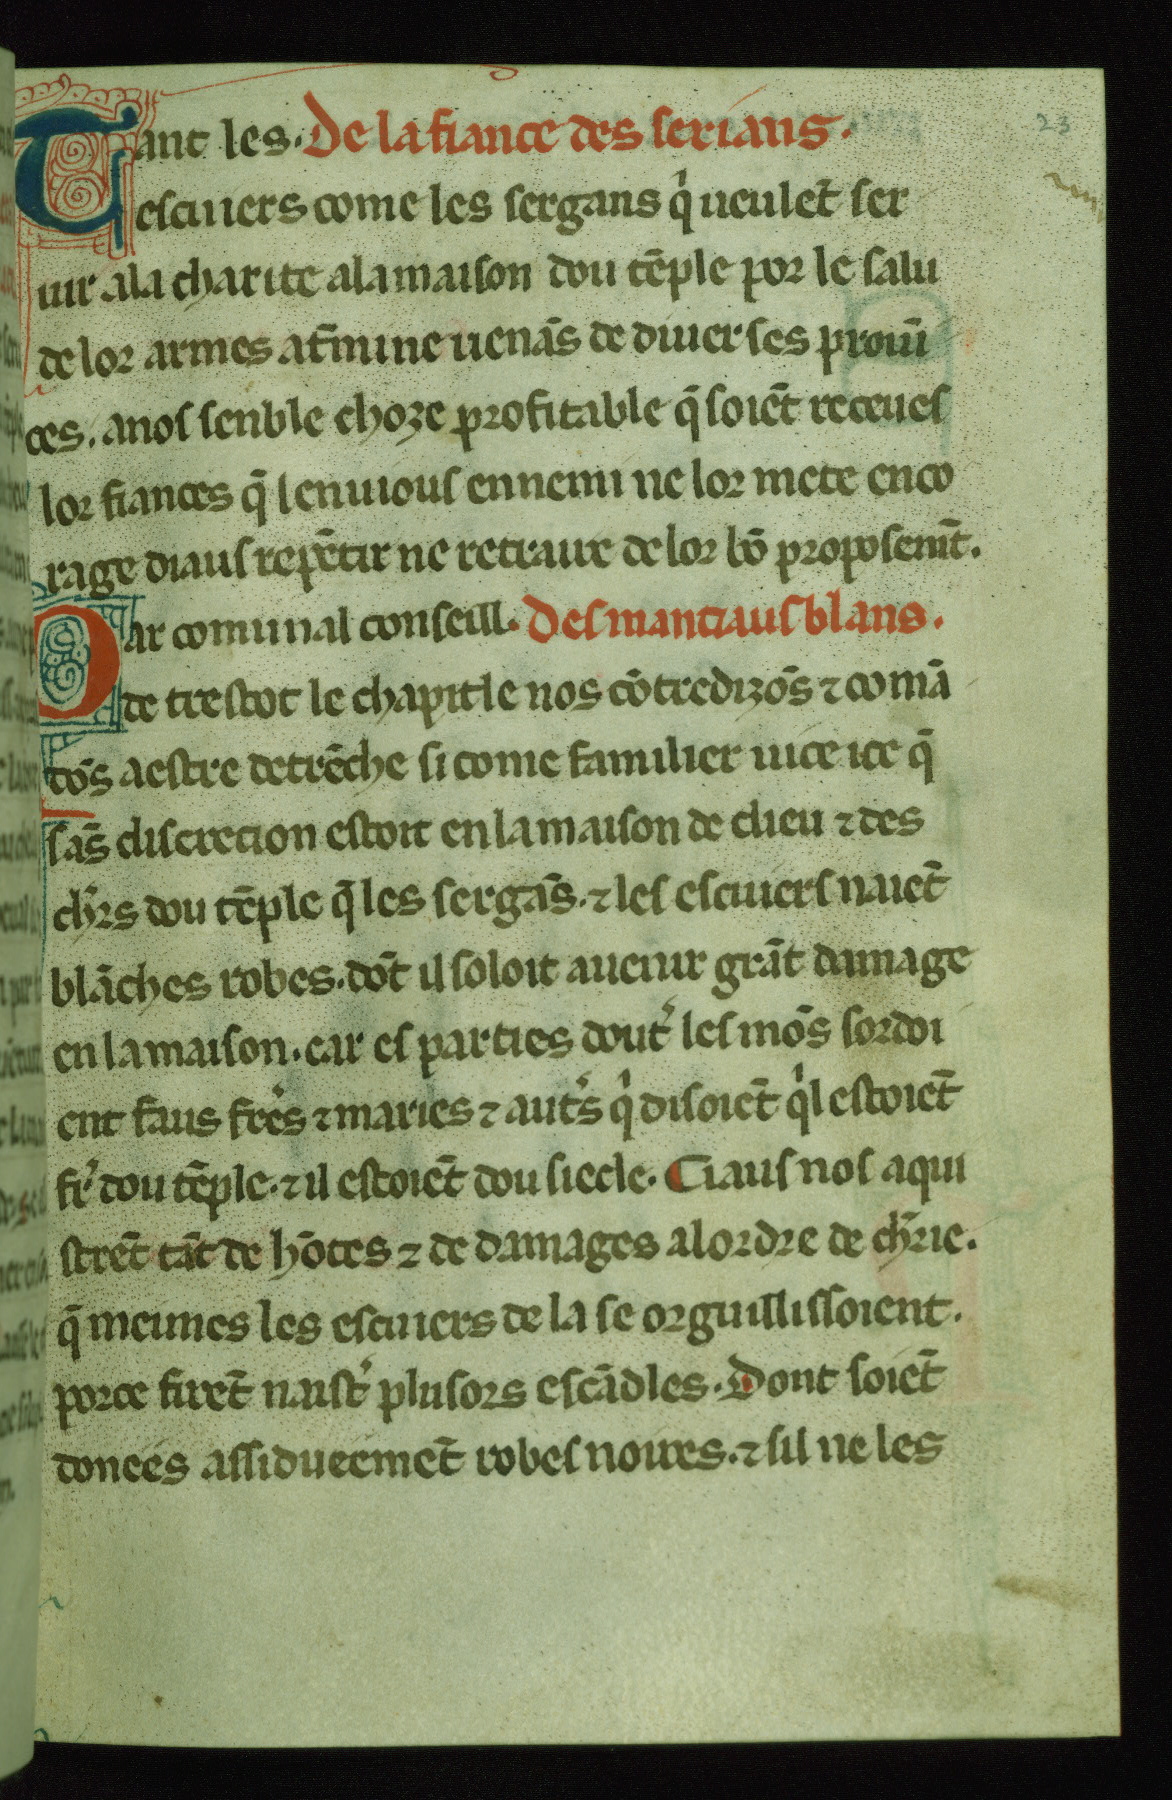 Tant les. De la fiance des serians.
escuiers come les sergans q̉ ueulet̄ ser
uir ala charite alamaison dou tēple por le salu
de lor armes at̄mine uenās de diuerses prouī
ces. anos senble choze profitable q̄ soiēt receues
lor fiances q̄ lenuious ennemi ne lor mete enco
rage diaus repētir ne retraire de lor bō proposemt̄.
Par comunal conseill. Des mantiaus blans.
de trestot le chapitle nos cōtredizōs ⁊ comā
dōs aestre detrēche si come familier uice ice q̄
sās discrecion estoit enlamaison de dieu ⁊ des
ch̄rs dou tēple q̄ les sergās. ⁊ les escuiers naiet̄
blāches robes. dōt il soloit auenir grāt damage
en lamaison. car es parties dout̉ les mōs sordoi
ent faus frẻs ⁊ maries ⁊ aut̉s q̉ disoiēt q̉l estoiēt
fr̉ dou tēple. ⁊ il estoiēt dou siecle. Ciaus nos aqui
strēt tāt de hōtes ⁊ de damages alordre de ch̄rie.
q̄ meimes les escuiers de la se orguillissoient.
porce firēt naist̉ plusors escādles. Dont soiēt
donees assidueemēt robes noires. ⁊ sil ne les
23